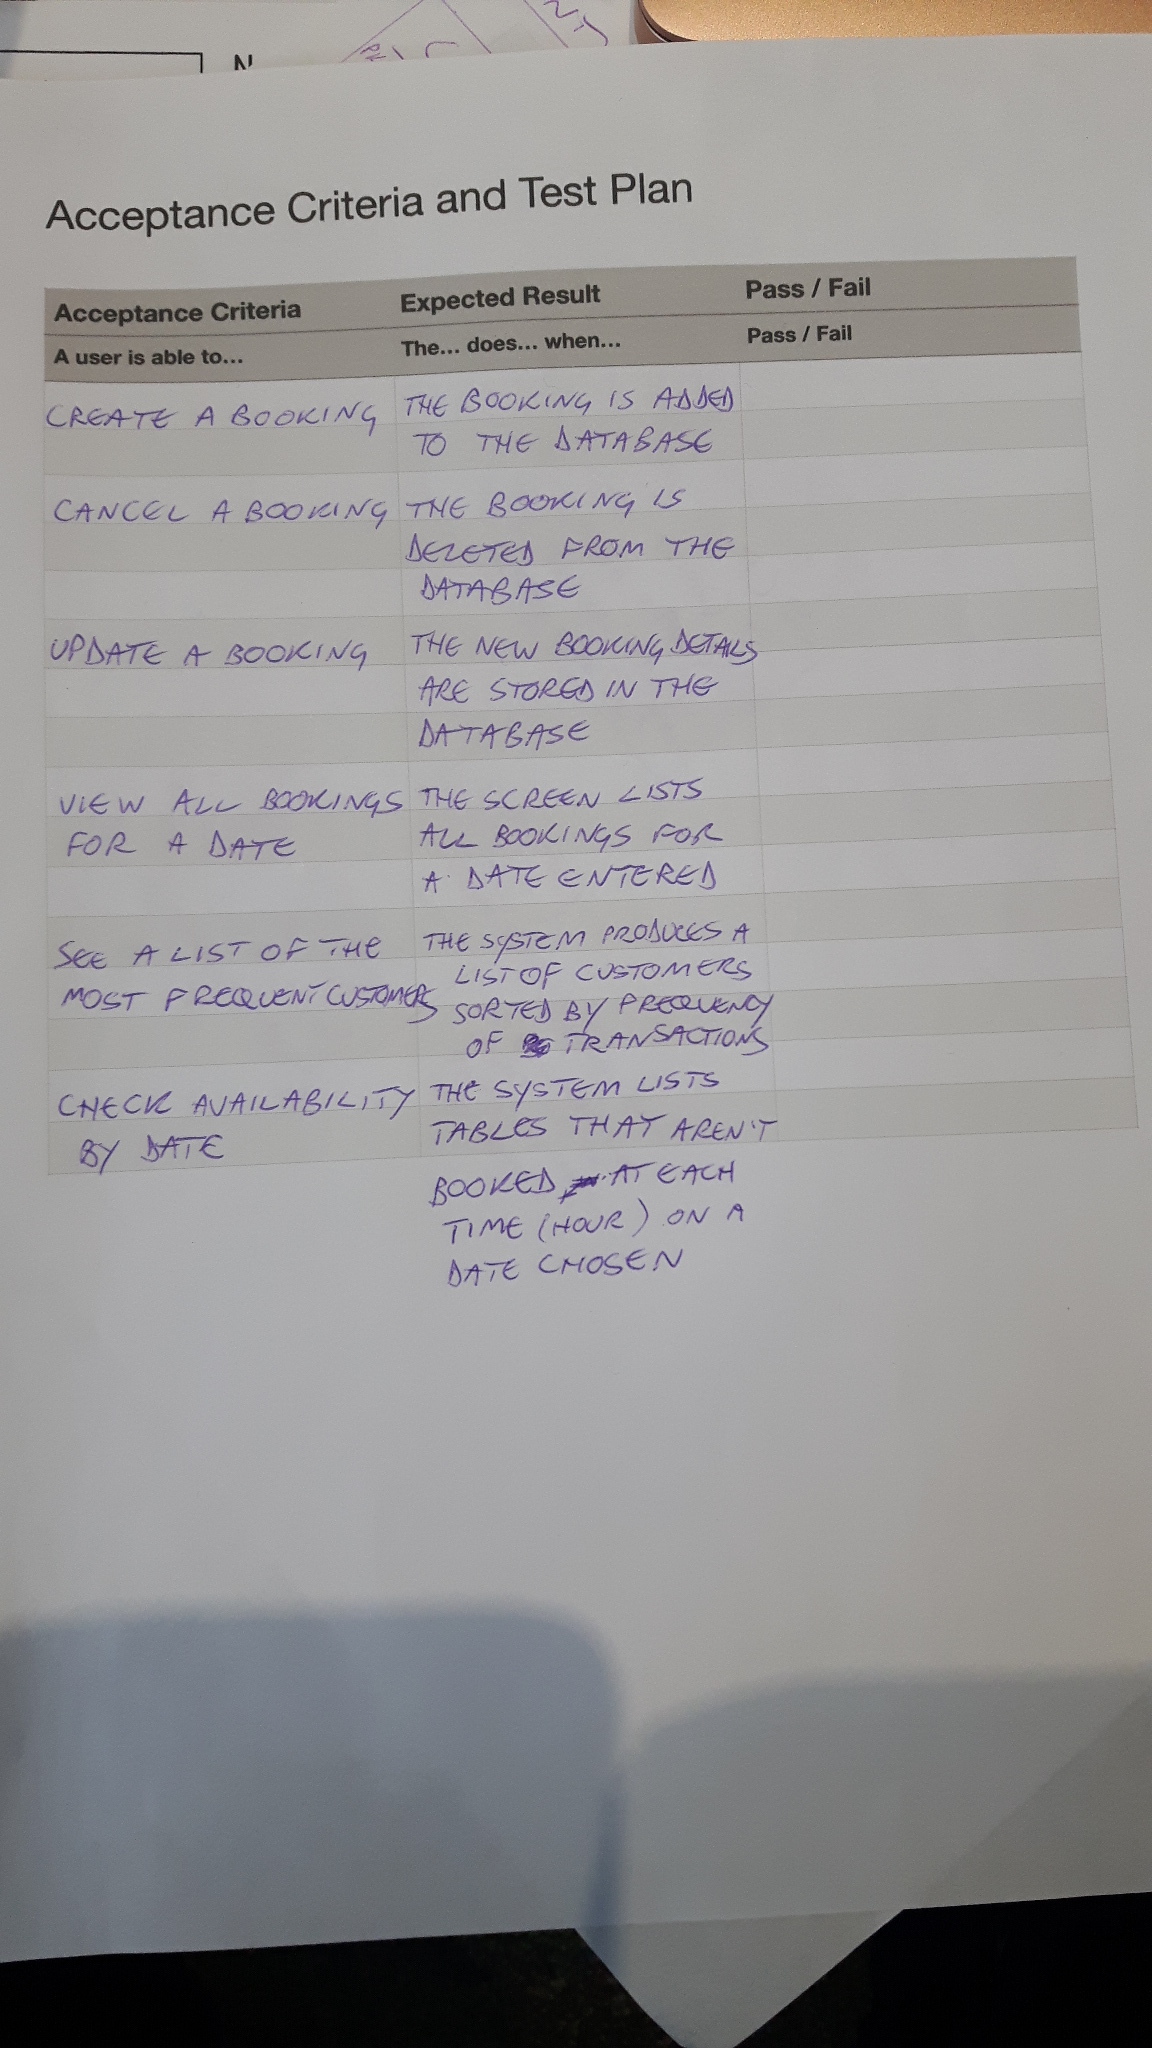 N
Acceptance Criteria and Test Plan
Acceptance Criteria Expected Result Pass / Fail
A user is able to... The... does... when... Pass / Fail
CREATE A BOOKING THE BOOKING IS ADDED
TO THE DATABASE
CANCEL A BOOKING THE BOOKING IS
DELETED FROM THE
DATABASE
UPDATE A BOOKING THE NEW BOOKING DETAILS
ARE STORED IN THE
DATABASE
VIEW ALL BOOKINGS THE SCREEN LISTS
FOR A DATE ALL BOOKINGS FOR
A DATE ENTERED
SEE A LIST OF THE THE SYSTEM PRODUCES A
MOST FREQUENT CUSTOMERS LIST OF CUSTOMERS
SORTED BY FREQUENCY
OF TRANSACTIONS
CHECK AVAILABILITY THE SYSTEM LISTS
BY DATE TABLES THAT AREN'T
BOOKED AT EACH
TIME (HOUR) ON A
DATE CHOSEN